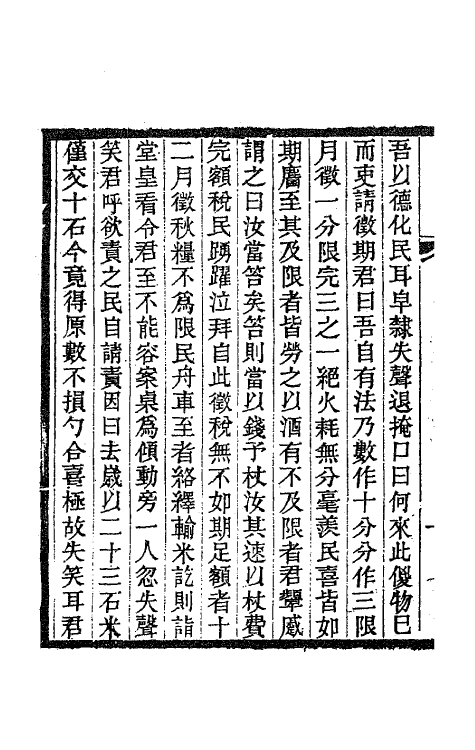 吾以德化民耳皁隸失聲退掩口曰何來此儍物已
而吏請徵期君曰吾自有法乃數作十分分作三限
月徵一分限完三之一絕火耗無分毫羨民喜皆如
期麕至其及限者皆勞之以酒有不及限者君顰蹙
謂之曰汝當笞矣笞則當以錢予杖汝其速以杖費
完額稅民踴躍泣拜自此徵稅無不如期足額者十
二月徵秋糧不爲限民舟車至者絡繹輸米訖則詣
堂皇看令君至不能容案桌爲傾動旁一人忽失聲
笑君呼欲責之民自請責因曰去歲以二十三石米
僅交十石今竟得原數不損勺合喜極故失笑耳君